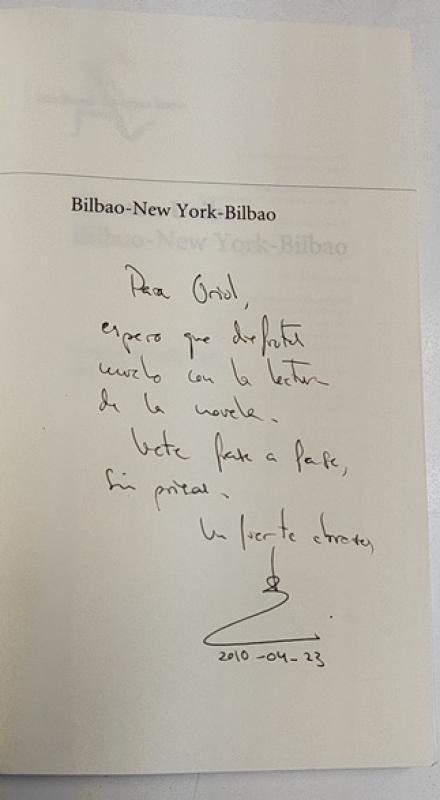 Bilbao-New York-Bilbao
Para Oriol,
espero que disfrutes
mucho con la lectura
de la novela.
Vete frase a frase,
sin prisas.
Un fuerte abrazo,
2010-04-23